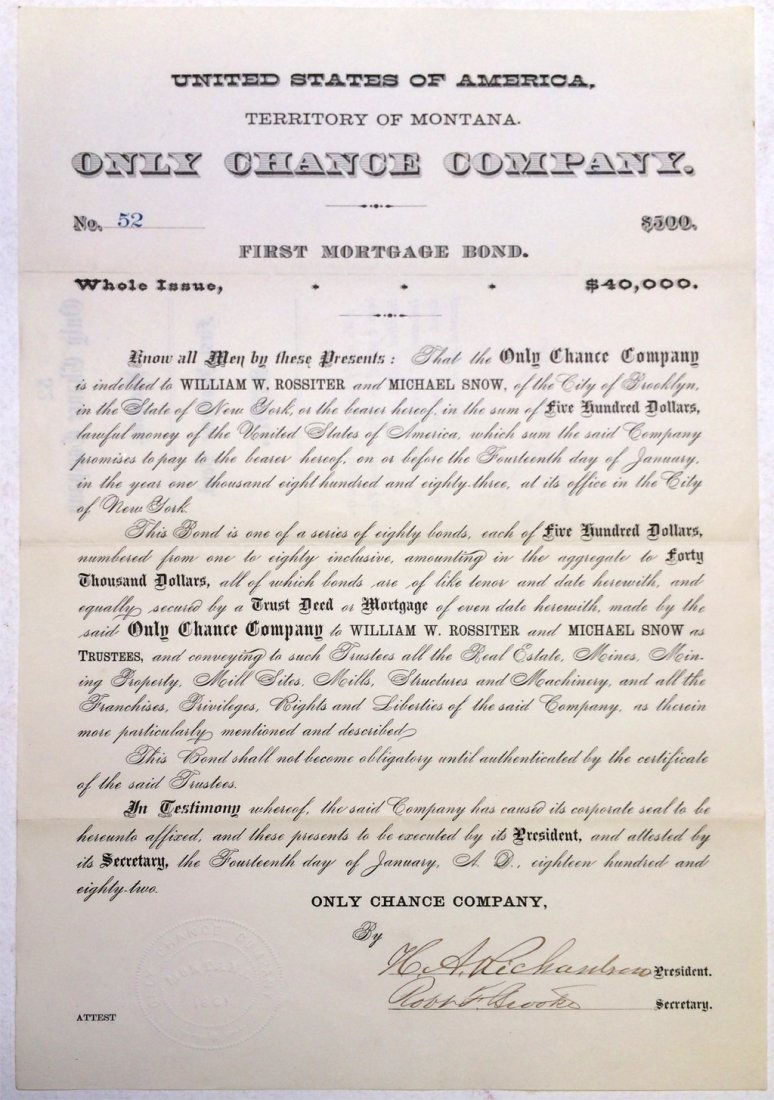 UNITED STATES OF AMERICA,
TERRITORY OF MONTANA.
ONLY CHANCE COMPANY.
No. 52 $500.
FIRST MORTGAGE BOND.
Whole Issue, $40,000.
Know all Men by these Presents: That the Only Chance Company
is indebted to WILLIAM W. ROSSITER and MICHAEL SNOW, of the City of Brooklyn,
in the State of New York, or the bearer hereof, in the sum of Five Hundred Dollars,
lawful money of the United States of America, which sum the said Company
promises to pay to the bearer hereof, on or before the Fourteenth day of January,
in the year one thousand eight hundred and eighty-three, at its office in the City
of New York.
This Bond is one of a series of eighty bonds, each of Five Hundred Dollars,
numbered from one to eighty inclusive, amounting in the aggregate to Forty
Thousand Dollars, all of which bonds are of like tenor and date herewith, and
equally secured by a Trust Deed or Mortgage of even date herewith, made by the
said Only Chance Company to WILLIAM W. ROSSITER and MICHAEL SNOW as
TRUSTEES, and conveying to such Trustees all the Real Estate, Mines, Min-
ing Property, Mill Sites, Mills, Structures and Machinery, and all the
Franchises, Privileges, Rights and Liberties of the said Company, as therein
more particularly mentioned and described
This Bond shall not become obligatory until authenticated by the certificate
of the said Trustees.
In Testimony whereof, the said Company has caused its corporate seal to be
hereunto affixed, and these presents to be executed by its President, and attested by
its Secretary, the Fourteenth day of January, A. D., eighteen hundred and
eighty-two.
ONLY CHANCE COMPANY,
By
H. A. Richardson President.
Robt F. Brooke Secretary.
ATTEST